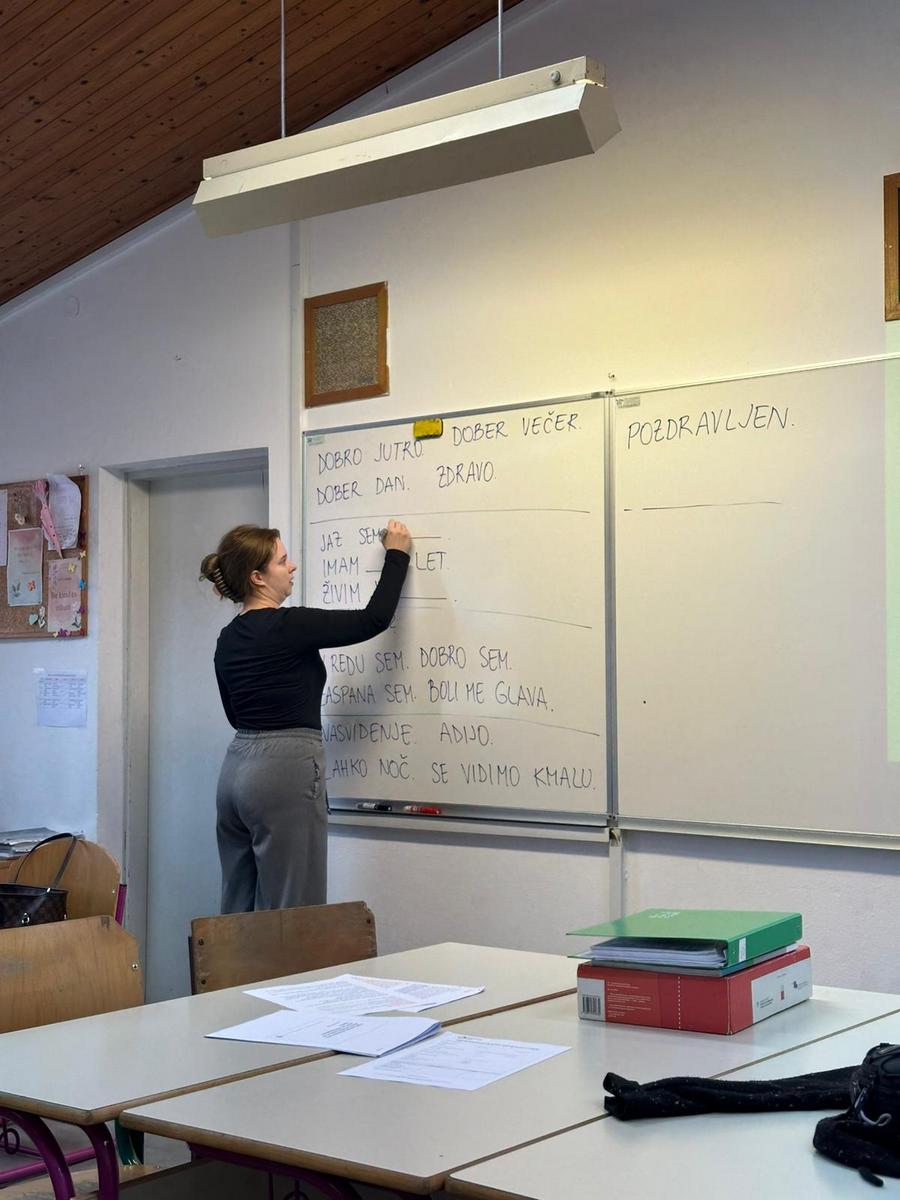 DOBRO JUTRO. DOBER VEČER.
DOBER DAN. ZDRAVO.
JAZ SEM
IMAM ___ LET.
ŽIVIM
REDU SEM. DOBRO SEM.
ASPANA SEM. BOLI ME GLAVA.
NASVIDENJE. ADIJO.
LAHKO NOČ. SE VIDIMO KMALU.
POZDRAVLJEN.